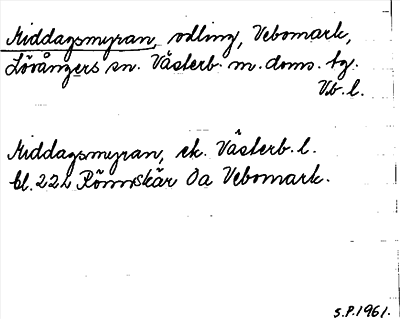 Middagsmyran, odling, Vebomark,
Lövångers sn. Västerb. m. doms. tg.
Vb. l.
Middagsmyran, ek. Västerb. l.
bl. 222 Rönnskär Öa Vebomark.
S.P. 1961.